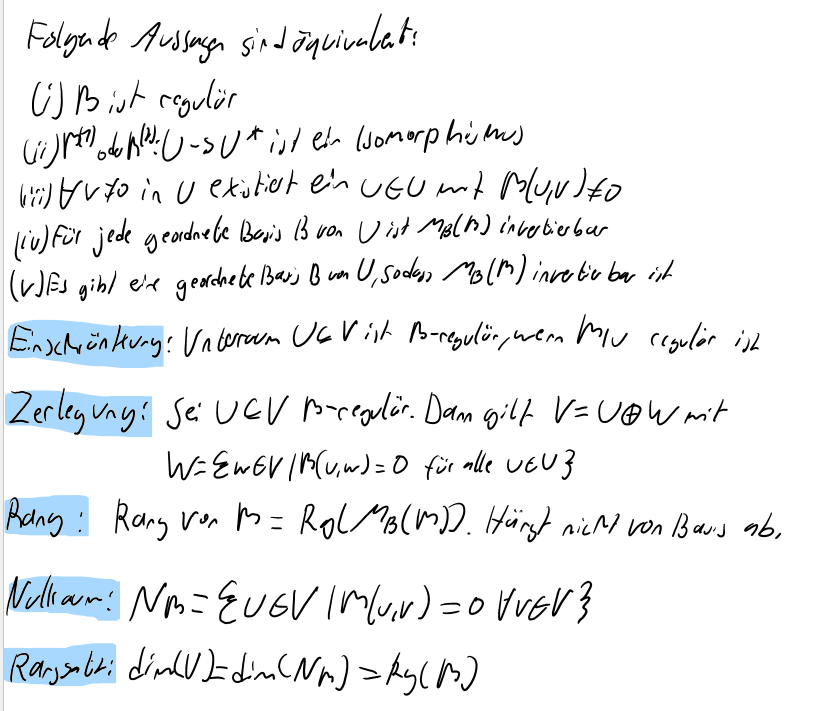 Folgende Aussagen sind äquivalent:
(i) β ist regulär
(ii) β⁽¹⁾ oder β⁽²⁾: U → U* ist ein Isomorphismus
(iii) ∀v≠0 in U existiert ein u∈U mit β(u,v)≠0
(iv) Für jede geordnete Basis B von U ist M_B(β) invertierbar
(v) Es gibt eine geordnete Basis B von U, sodass M_B(β) invertierbar ist
Einschränkung: Unterraum U⊆V ist β-regulär, wenn β|U regulär ist
Zerlegung: Sei U⊆V β-regulär. Dann gilt V=U⊕W mit
W={w∈V | β(u,w)=0 für alle u∈U}
Rang: Rang von β = Rg(M_B(β)). Hängt nicht von Basis ab.
Nullraum: N_β={u∈V | β(u,v)=0 ∀v∈V}
Rangsatz: dim(V)=dim(N_β)=Rg(β)